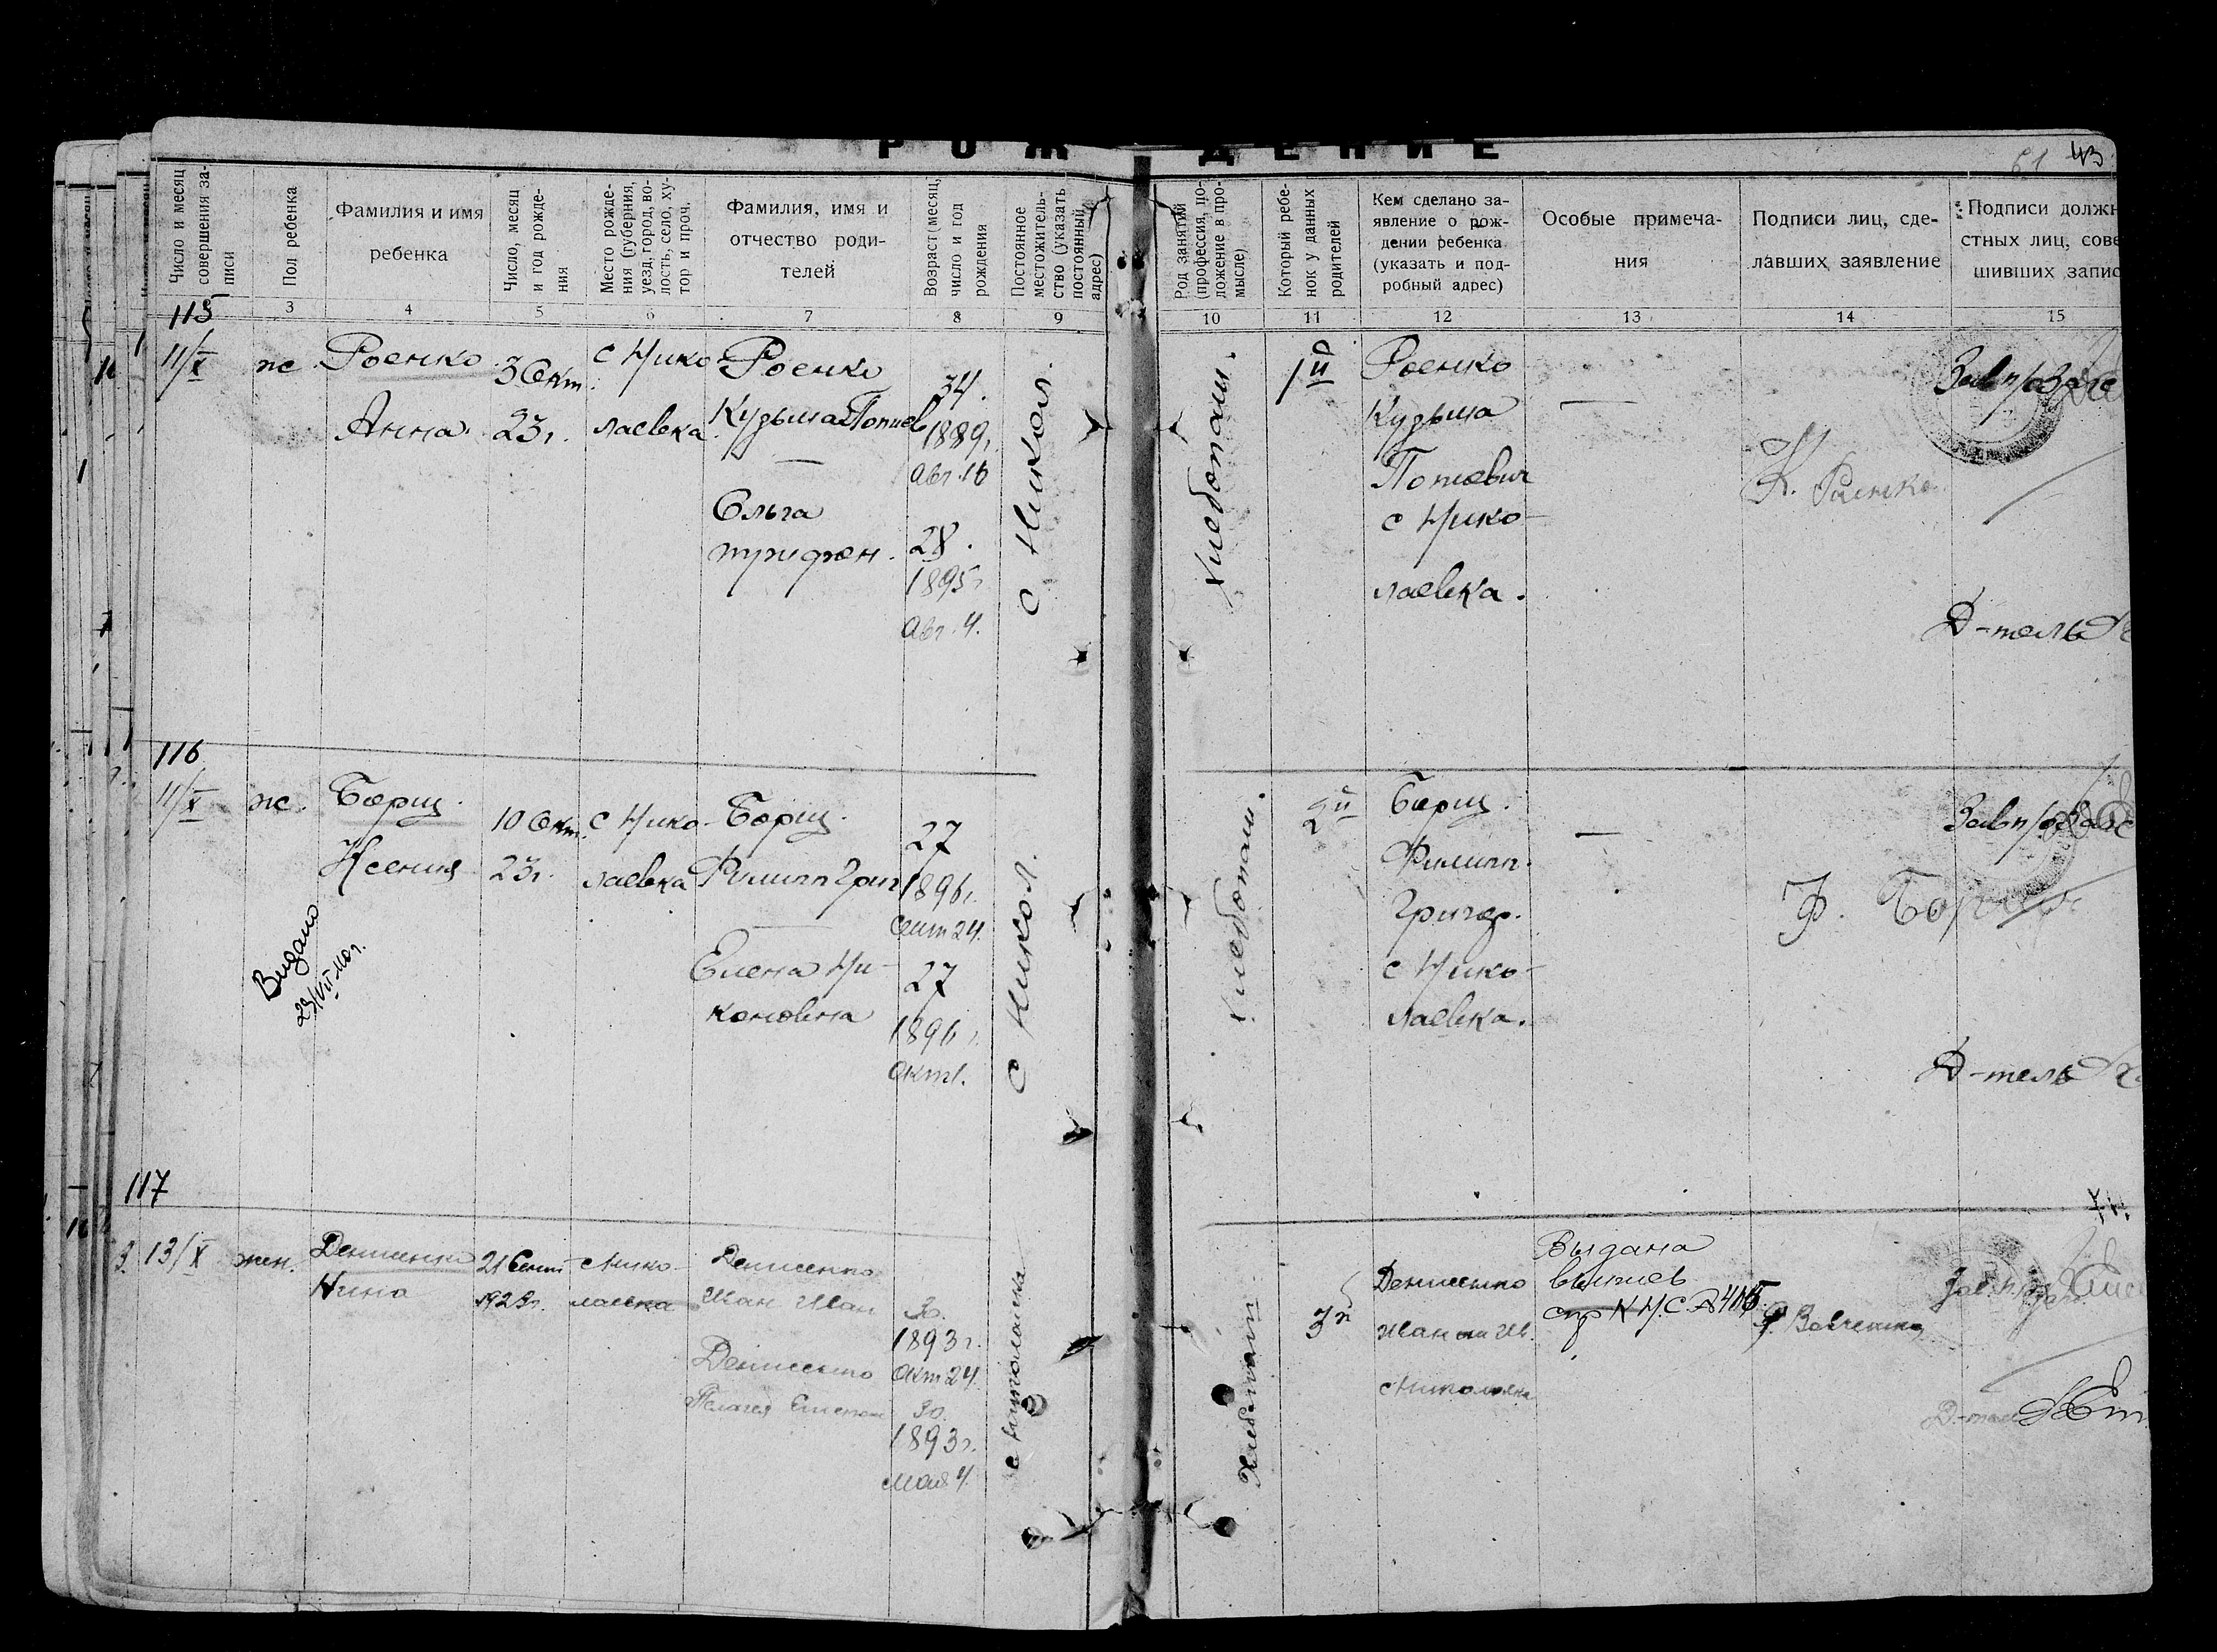 РОЖДЕНИЕ
61 43
Число и месяц совершения записи
Пол ребенка
Фамилия и имя
ребенка
Число, месяц
и год рожде-
ния
Место рожде-
ния (губерния,
уезд, город, во-
лость, село, ху-
тор и проч.
Фамилия, имя и
отчество роди-
телей
Возраст (месяц,
число и год
рождения
Постоянное
местожитель-
ство (указать
постоянный
адрес)
Род занятий
(профессия, по-
ложение в про-
мысле)
Который ребе-
нок у данных
родителей
Кем сделано за-
явление о рож-
дении ребенка
(указать и под-
робный адрес)
Особые примеча-
ния
Подписи лиц, сде-
лавших заявление
Подписи долж
стных лиц, сове
шивших запис
3 4 5 6 7 8 9 10 11 12 13 14 15
115
11/X
ж.
Роенко
Анна
3 Окт.
23г.
с Нико-
лаевка
Роенко
Кузьма
34.
1889г.
Авг. 16
Ольга
трифон.
28.
1895г
Авг. 4.
с Никол.
Хлебопаш.
1й
Роенко
Кузьма
с Нико-
лаевка.
—
К. Роенко
Д-тель
116
11/X
ж.
Борщ.
Ксения
10 Окт.
23г.
с Нико-
лаевка
Борщ.
Филипп Григ
27
1896г.
Сент 24.
Елена Ни-
коновна
27
1896г.
Окт 1.
с Никол.
Хлебопаш.
2й
Борщ.
Филипп.
Григор.
с Нико-
лаевка.
—
Ф. Борщ
Д-тель
Видано
29/VII 40г.
117
13/X
жен.
Денисенко
Нина
21 Сент
1923г.
с Нико-
лаевка
Денисенко
Иван Иван
30.
1893г.
Окт 24.
Денисенко
Пелагея
30.
1893г.
Мая 4.
с Николаевка
Хлебопаш
3й
Денисенко
Иван Ив.
с Николаевка
Выдана
выпись
Д-тель